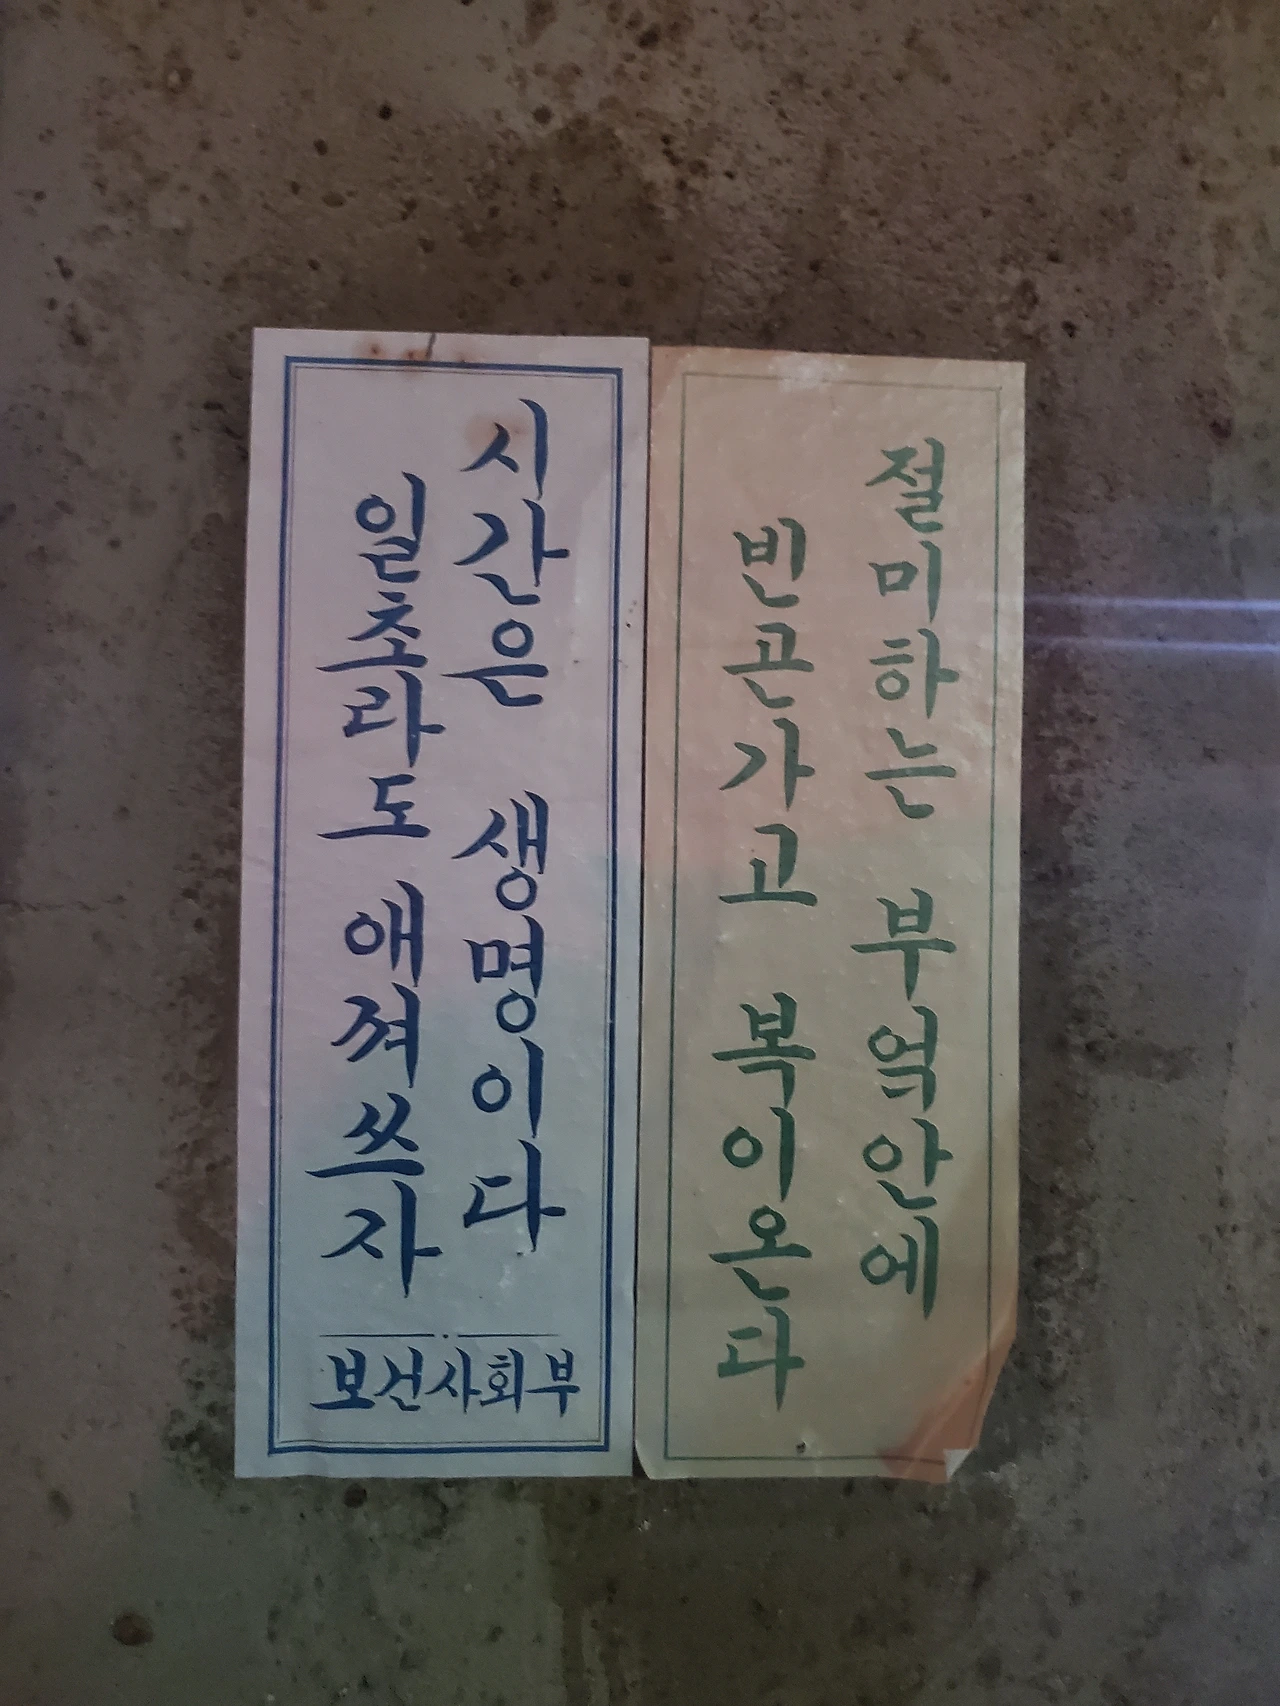 시간은 생명이다
일초라도 애껴쓰자
보건사회부
절미하는 부엌안에
빈곤가고 복이온다